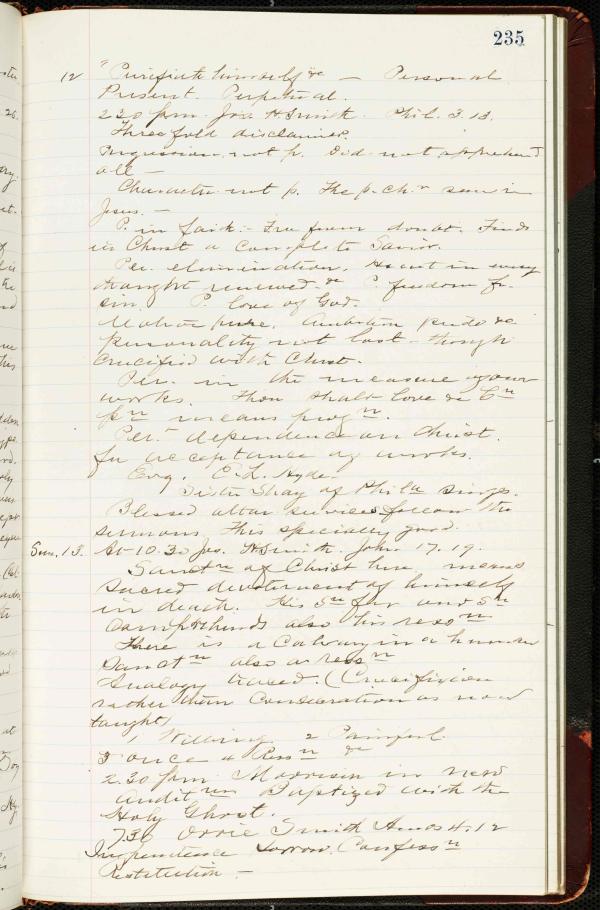 235
12 "Purifieth himself &c — Personal
Present. Perpetual.
2.30 pm. Jos. H Smith. Phil. 3.13.
Three fold disclaimer.
Progression, not p. Did not apprehend
all —
Character not p. The p. ch.r seen in
Jesus. —
P. in faith. - Free from doubt. Finds
in Christ a complete Savior.
Per. elimination. in every
thought renewed. &c P. freedom fr.
sin. P. love of God.
pure. Ambition pride &c
personality not lost - though
crucified with Christ.
Per. in the measure of your
works. Thou shalt love &c
means prog.n.
Per.n dependence on Christ.
for acceptance of works.
Evg. E. L. Hyde.
Sister Shay of Phila sings.
Blessed altar services follow the
sermons. This specially good.
Sun. 13. At 10.30 Jos. H Smith. John 17.19.
Sanct.n of Christ here, means
sacred devotement of himself
in death. His
comprehends also his res.n
There is a Calvary in a human
Sanct.n also a res.n
Analogy traced. (Crucifixion
rather than Consecration as now
taught)
1 Willing 2 Painful
3 once a Res.n &c
2.30 pm Morrison in new
Audit.um Baptized with the
Holy Ghost.
7.30 Orrie Smith Amos 4.12
Impenitence Sorrow. Confess.n
Restitution —